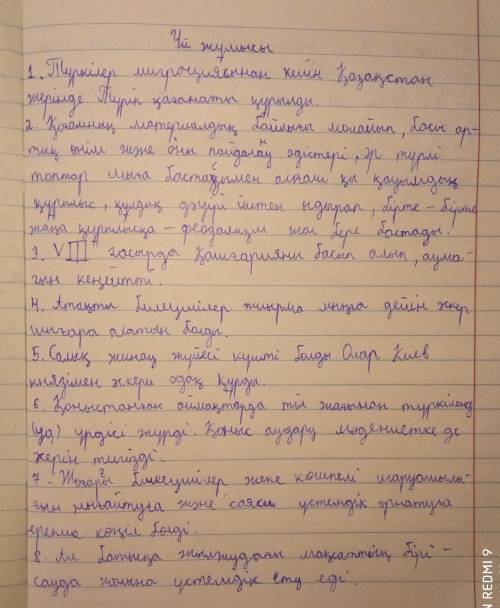 Үй жұмысы
1. Түркілер миграциясынан кейін Қазақстан
жерінде Түрік қағанаты құрылды.
2. Қоғамның материалдық байлығы молайып, басы ар-
тық өнім және оны пайдалану әдістері, әр түрлі
топтар шыға бастасымен алғаш қы қауымдық
құрылыс, құлдық дәуірі іштен ыдырап, бірте - бірте
жаңа құрылысқа - феодализм жол бере бастады.
3. VIII ғасырда Қашғарияны басып алып, аума-
ғын кеңейтті.
4. Атақты билеушілер жиырма мыңға дейін әскер
шығара алатын болды.
5. Салық жинау жүйесі күшті болды Олар Киев
князімен әскери одақ құрды.
6. Қоныстанған аймақтарда тіл жағынан түркілену
(уд) үрдісі жүрді. Қоныс аудару мәдениетке де
әсерін тигізді.
7 - Жоғары билеушілер жеке көшпелі шаруашылы-
ғын нығайтуға және саяси үстемдік орнатуға
ерекше көңіл бөлді.
8. Ал батысқа жылжудағы мақсаттың бірі -
сауда жолына үстемдік ету еді.
REDMI 9